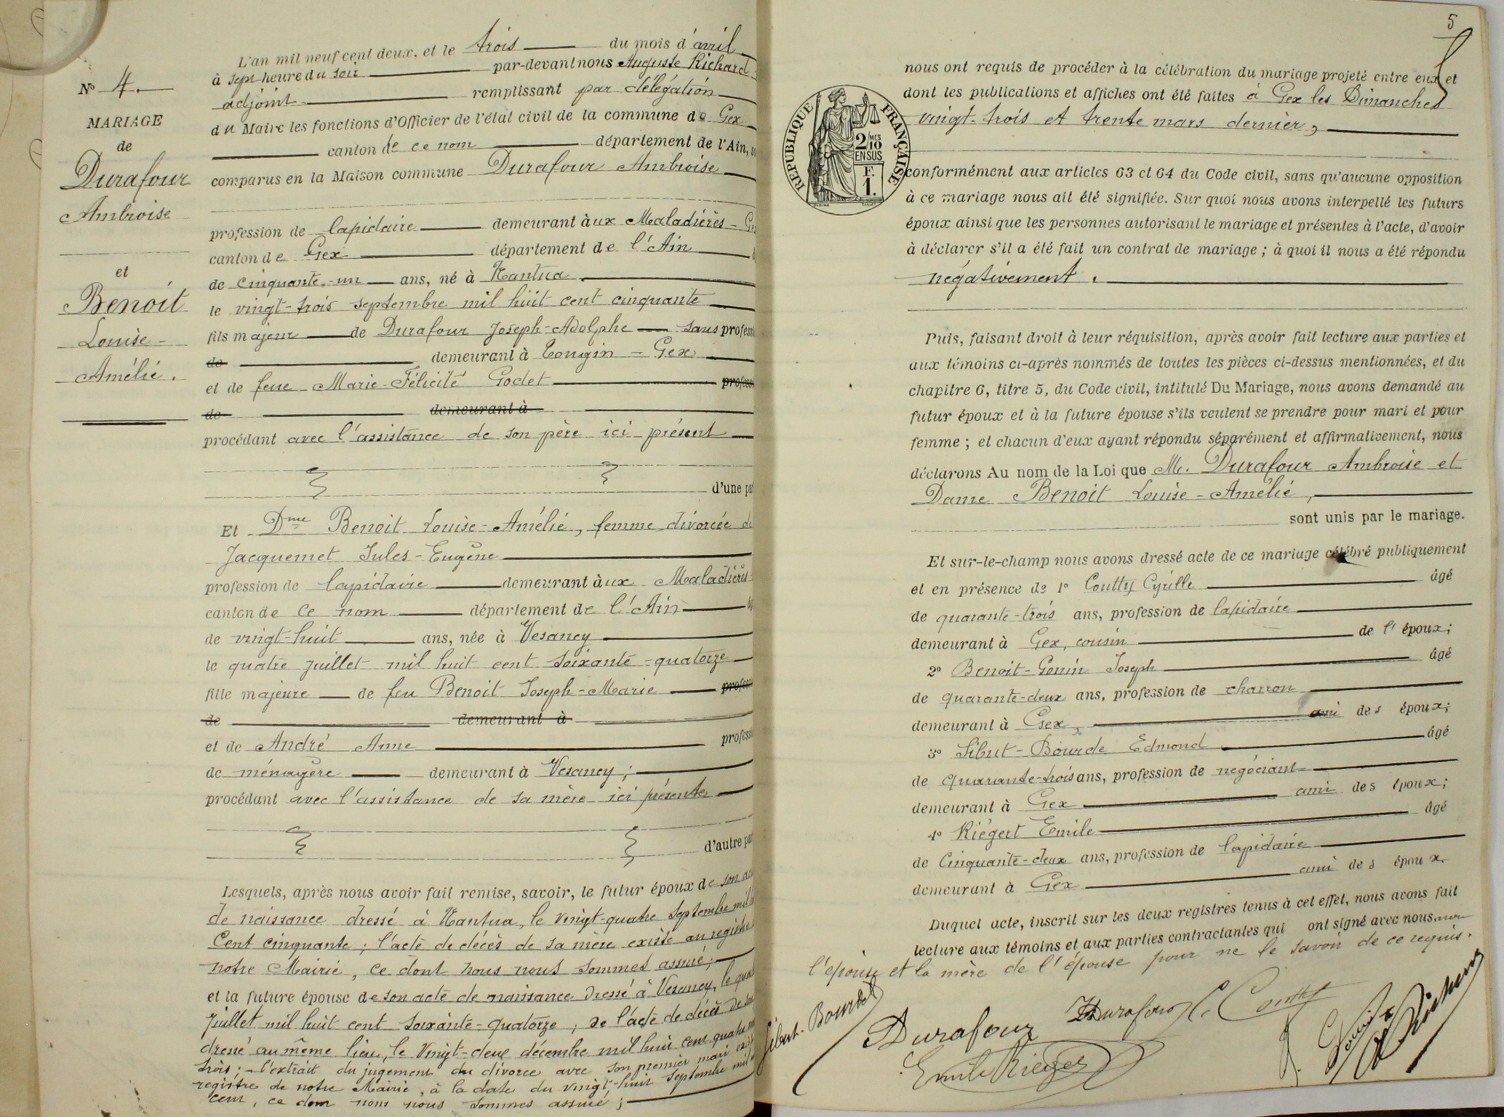 N° 4.
MARIAGE
de
Durafour
Ambroise
et
Benoit
Louise-
Amélie.
L'an mil neuf cent deux, et le trois du mois d'avril
à sept heure du soir par-devant nous Auguste Richard
adjoint remplissant par délégation
du Maire les fonctions d'Officier de l'état civil de la commune de Gex
canton de ce nom département de l'Ain,
comparus en la Maison commune Durafour Ambroise
profession de lapidaire demeurant aux Maladières - Gex
canton de Gex département de l'Ain
de cinquante-un ans, né à Nantua
le vingt-trois septembre mil huit cent cinquante
fils majeur de Durafour Joseph-Adolphe sans profess
de demeurant à Tougin - Gex
et de feue Marie-Félicité Godet profess
de demeurant à
procédant avec l'assistance de son père ici présent
d'une par
Et Dme Benoit Louise-Amélie, femme divorcée de
Jacquemet Jules-Eugène
profession de lapidaire demeurant aux Maladières
canton de ce nom département de l'Ain
de vingt-huit ans, née à Vesancy
le quatre juillet mil huit cent soixante-quatorze
fille majeure de feu Benoit Joseph-Marie profess
de demeurant à
et de André Anne profess
de ménagère demeurant à Vesancy;
procédant avec l'assistance de sa mère ici présente
d'autre par
Lesquels, après nous avoir fait remise, savoir, le futur époux de son ac
de naissance dressé à Nantua, le vingt-quatre Septembre mil
Cent cinquante; l'acte de décès de sa mère existe au registre
notre Mairie, ce dont nous nous sommes assuré;
et la future épouse de son acte de naissance dressé à Vesancy, le qua
Juillet mil huit cent soixante-quatorze, de l'acte de décès de son
dressé au même lieu, le vingt-deux décembre mil huit cent quatre
trois; l'extrait du jugement du divorce avec son premier mari
registre de notre Mairie, à la date du vingt-huit Septembre mil
cent, ce dont nous nous sommes assuré;
5
nous ont requis de procéder à la célébration du mariage projeté entre eux et
dont les publications et affiches ont été faites à Gex les Dimanches
vingt-trois et trente mars dernier,
RÉPUBLIQUE FRANÇAISE
2/10 MES
EN SUS
F.
1.
conformément aux articles 63 et 64 du Code civil, sans qu'aucune opposition
à ce mariage nous ait été signifiée. Sur quoi nous avons interpellé les futurs
époux ainsi que les personnes autorisant le mariage et présentes à l'acte, d'avoir
à déclarer s'il a été fait un contrat de mariage; à quoi il nous a été répondu
négativement.
Puis, faisant droit à leur réquisition, après avoir fait lecture aux parties et
aux témoins ci-après nommés de toutes les pièces ci-dessus mentionnées, et du
chapitre 6, titre 5, du Code civil, intitulé Du Mariage, nous avons demandé au
futur époux et à la future épouse s'ils veulent se prendre pour mari et pour
femme; et chacun d'eux ayant répondu séparément et affirmativement, nous
déclarons Au nom de la Loi que M. Durafour Ambroise et
Dame Benoit Louise-Amélie,
sont unis par le mariage.
Et sur-le-champ nous avons dressé acte de ce mariage célébré publiquement
et en présence de 1° Coutty Cyrille âgé
de quarante-trois ans, profession de lapidaire
demeurant à Gex, cousin de l'époux;
2° Benoit-Gonin Joseph âgé
de quarante-deux ans, profession de charron
demeurant à Gex, ami des époux;
3° Sibut-Bourde Edmond âgé
de quarante-trois ans, profession de négociant
demeurant à Gex ami des époux;
4° Riégert Emile âgé
de Cinquante-deux ans, profession de lapidaire
demeurant à Gex ami des époux.
Duquel acte, inscrit sur les deux registres tenus à cet effet, nous avons fait
lecture aux témoins et aux parties contractantes qui ont signé avec nous, non
l'épouse et la mère de l'épouse pour ne le savoir de ce requis.
Sibut-Bourde
Durafour Durafour C. Coutty
Emile Rieger